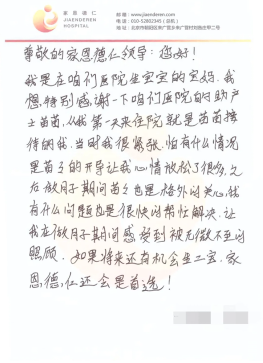 家恩德仁
JIAENDEREN
HOSPITAL
网址: www.jiaenderen.com
电话: 010-52802345 (总机)
尊敬的家恩德仁领导:您好!
我是在咱们医院生宝宝的宝妈,我
想特别感谢一下咱们医院的助产
士苗苗,从我第一天来住院就是苗苗接
待的我,当时我很紧张,怕有什么情况
是苗苗的开导让我心情放松了很多,之
后做月子期间苗苗也是格外的关心,我
有什么问题也是很快的帮忙解决,让
我在做月子期间感受到被无微不至的
照顾,如果将来还有机会生二宝,家
恩德仁还会是首选!